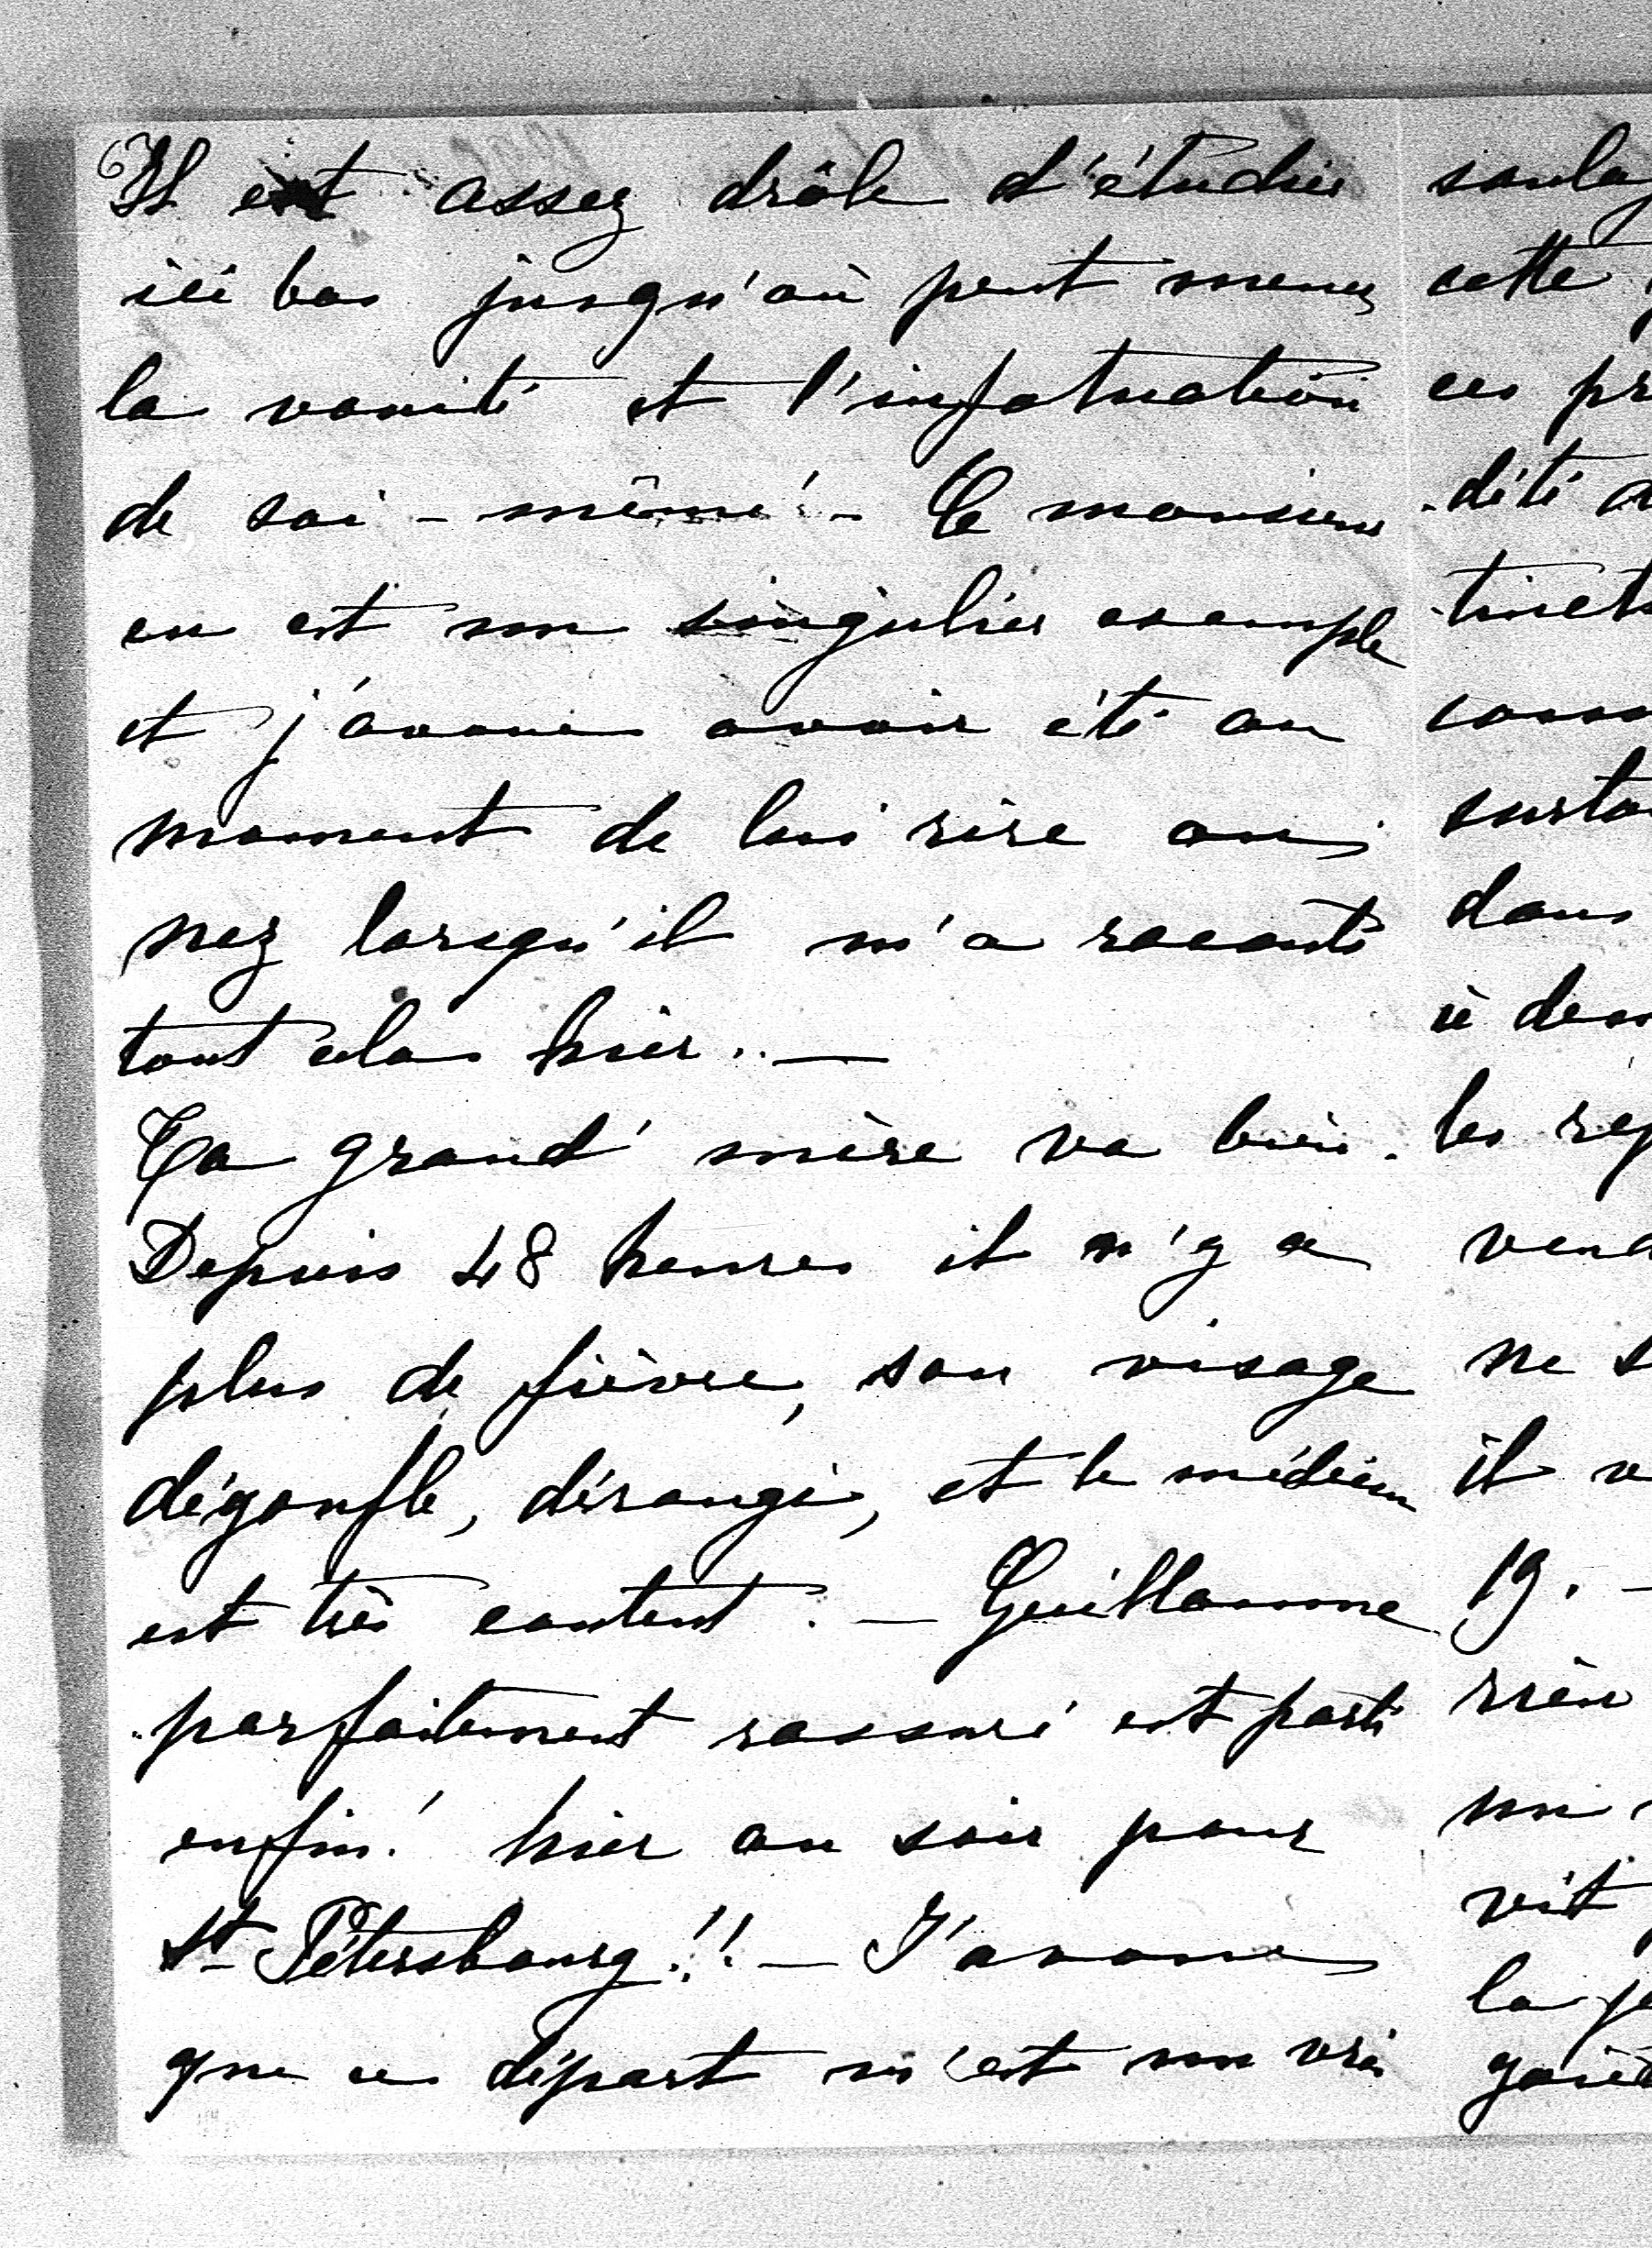 Il est assez drôle d'étudier
ici bas jusqu'où peut mener
la vanité et l'infatuation
de soi-même - Ce monsieur
en est un singulier exemple
et j'avoue avoir été au
moment de lui rire au
nez lorsqu'il m'a raconté
tout cela hier. —
Ta grand'mère va bien.
Depuis 48 heures il n'y a
plus de fièvre, son visage
dégonfle, dérougi, et le médecin
est très content. — Guillaume
parfaitement rassuré est parti
enfin! hier au soir pour
St Pétersbourg!! — J'avoue
que ce départ m'est un vrai
soulag
cette
ces pr
-dité a
-tinct
conn
surto
dans
les rép
ne s
il v
19. -
rien
un
vit
la